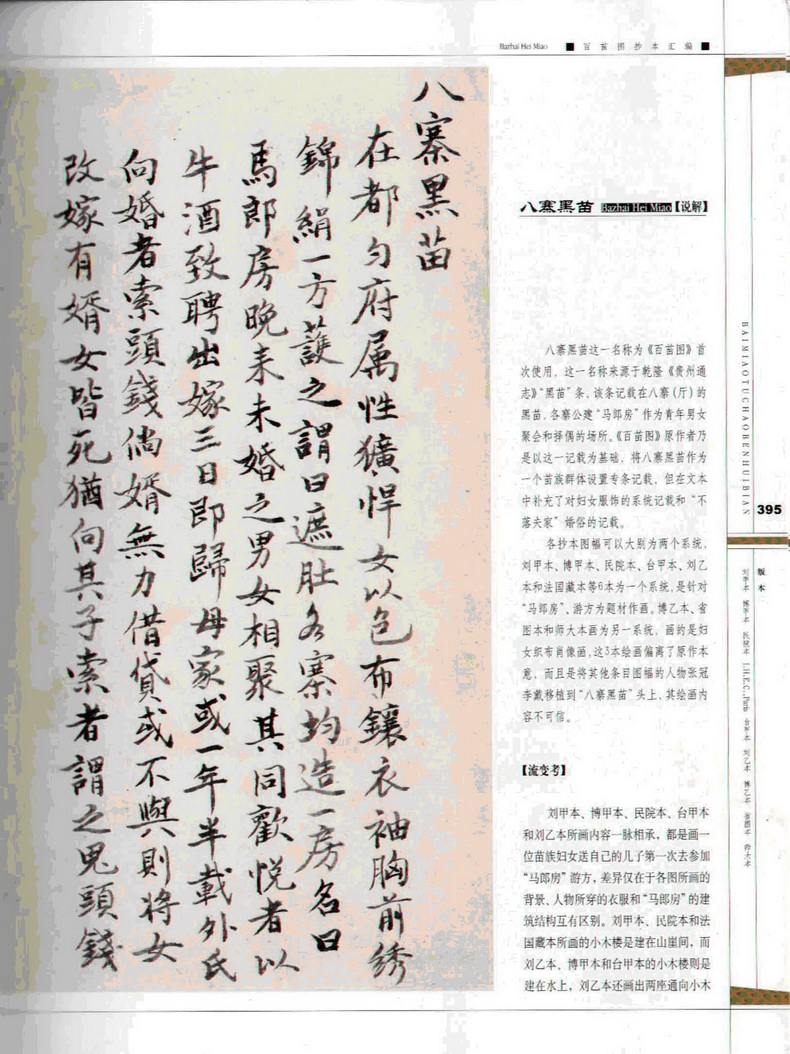 Bazhai Hei Miao ■ 百苗图抄本汇编 ■
八寨黑苗
在都匀府属性獷悍女以色布鑲衣袖胸前綉
錦絹一方護之謂曰遮肚各寨均造一房名曰
馬郎房晚来未婚之男女相聚其同歡悦者以
牛酒致聘出嫁三日即歸母家或一年半載外氏
向婚者索頭錢倘婿無力借貸或不與則将女
改嫁有婿女皆死猶向其子索者謂之鬼頭錢
八寨黑苗 Bazhai Hei Miao【说解】
八寨黑苗这一名称为《百苗图》首
次使用，这一名称来源于乾隆《贵州通
志》“黑苗”条、该条记载在八寨（厅）的
黑苗，各寨公建“马郎房”作为青年男女
聚会和择偶的场所。《百苗图》原作者乃
是以这一记载为基础，将八寨黑苗作为
一个苗族群体设置专条记载，但在文本
中补充了对妇女服饰的系统记载和“不
落夫家”婚俗的记载。
各抄本图幅可以大别为两个系统，
刘甲本、博甲本、民院本、台甲本、刘乙
本和法国藏本等6本为一个系统，是针对
“马郎房”、游方为题材作画。博乙本、省
图本和师大本画为另一系统，画的是妇
女织布肖像画，这3本绘画偏离了原作本
意，而且是将其他条目图幅的人物张冠
李戴移植到“八寨黑苗”头上，其绘画内
容不可信。
【流变考】
刘甲本、博甲本、民院本、台甲本
和刘乙本所画内容一脉相承，都是画一
位苗族妇女送自己的儿子第一次去参加
“马郎房”游方，差异仅在于各图所画的
背景、人物所穿的衣服和“马郎房”的建
筑结构互有区别，刘甲本、民院本和法
国藏本所画的小木楼是建在山崖间，而
刘乙本、博甲本和台甲本的小木楼则是
建在水上，刘乙本还画出两座通向小木
BAIMIAOTUCHAOBENHUIBIAN
395
版本
刘甲本 博甲本 民院本 I.H.E.C.,Paris 台甲本 刘乙本 博乙本 省图本 师大本